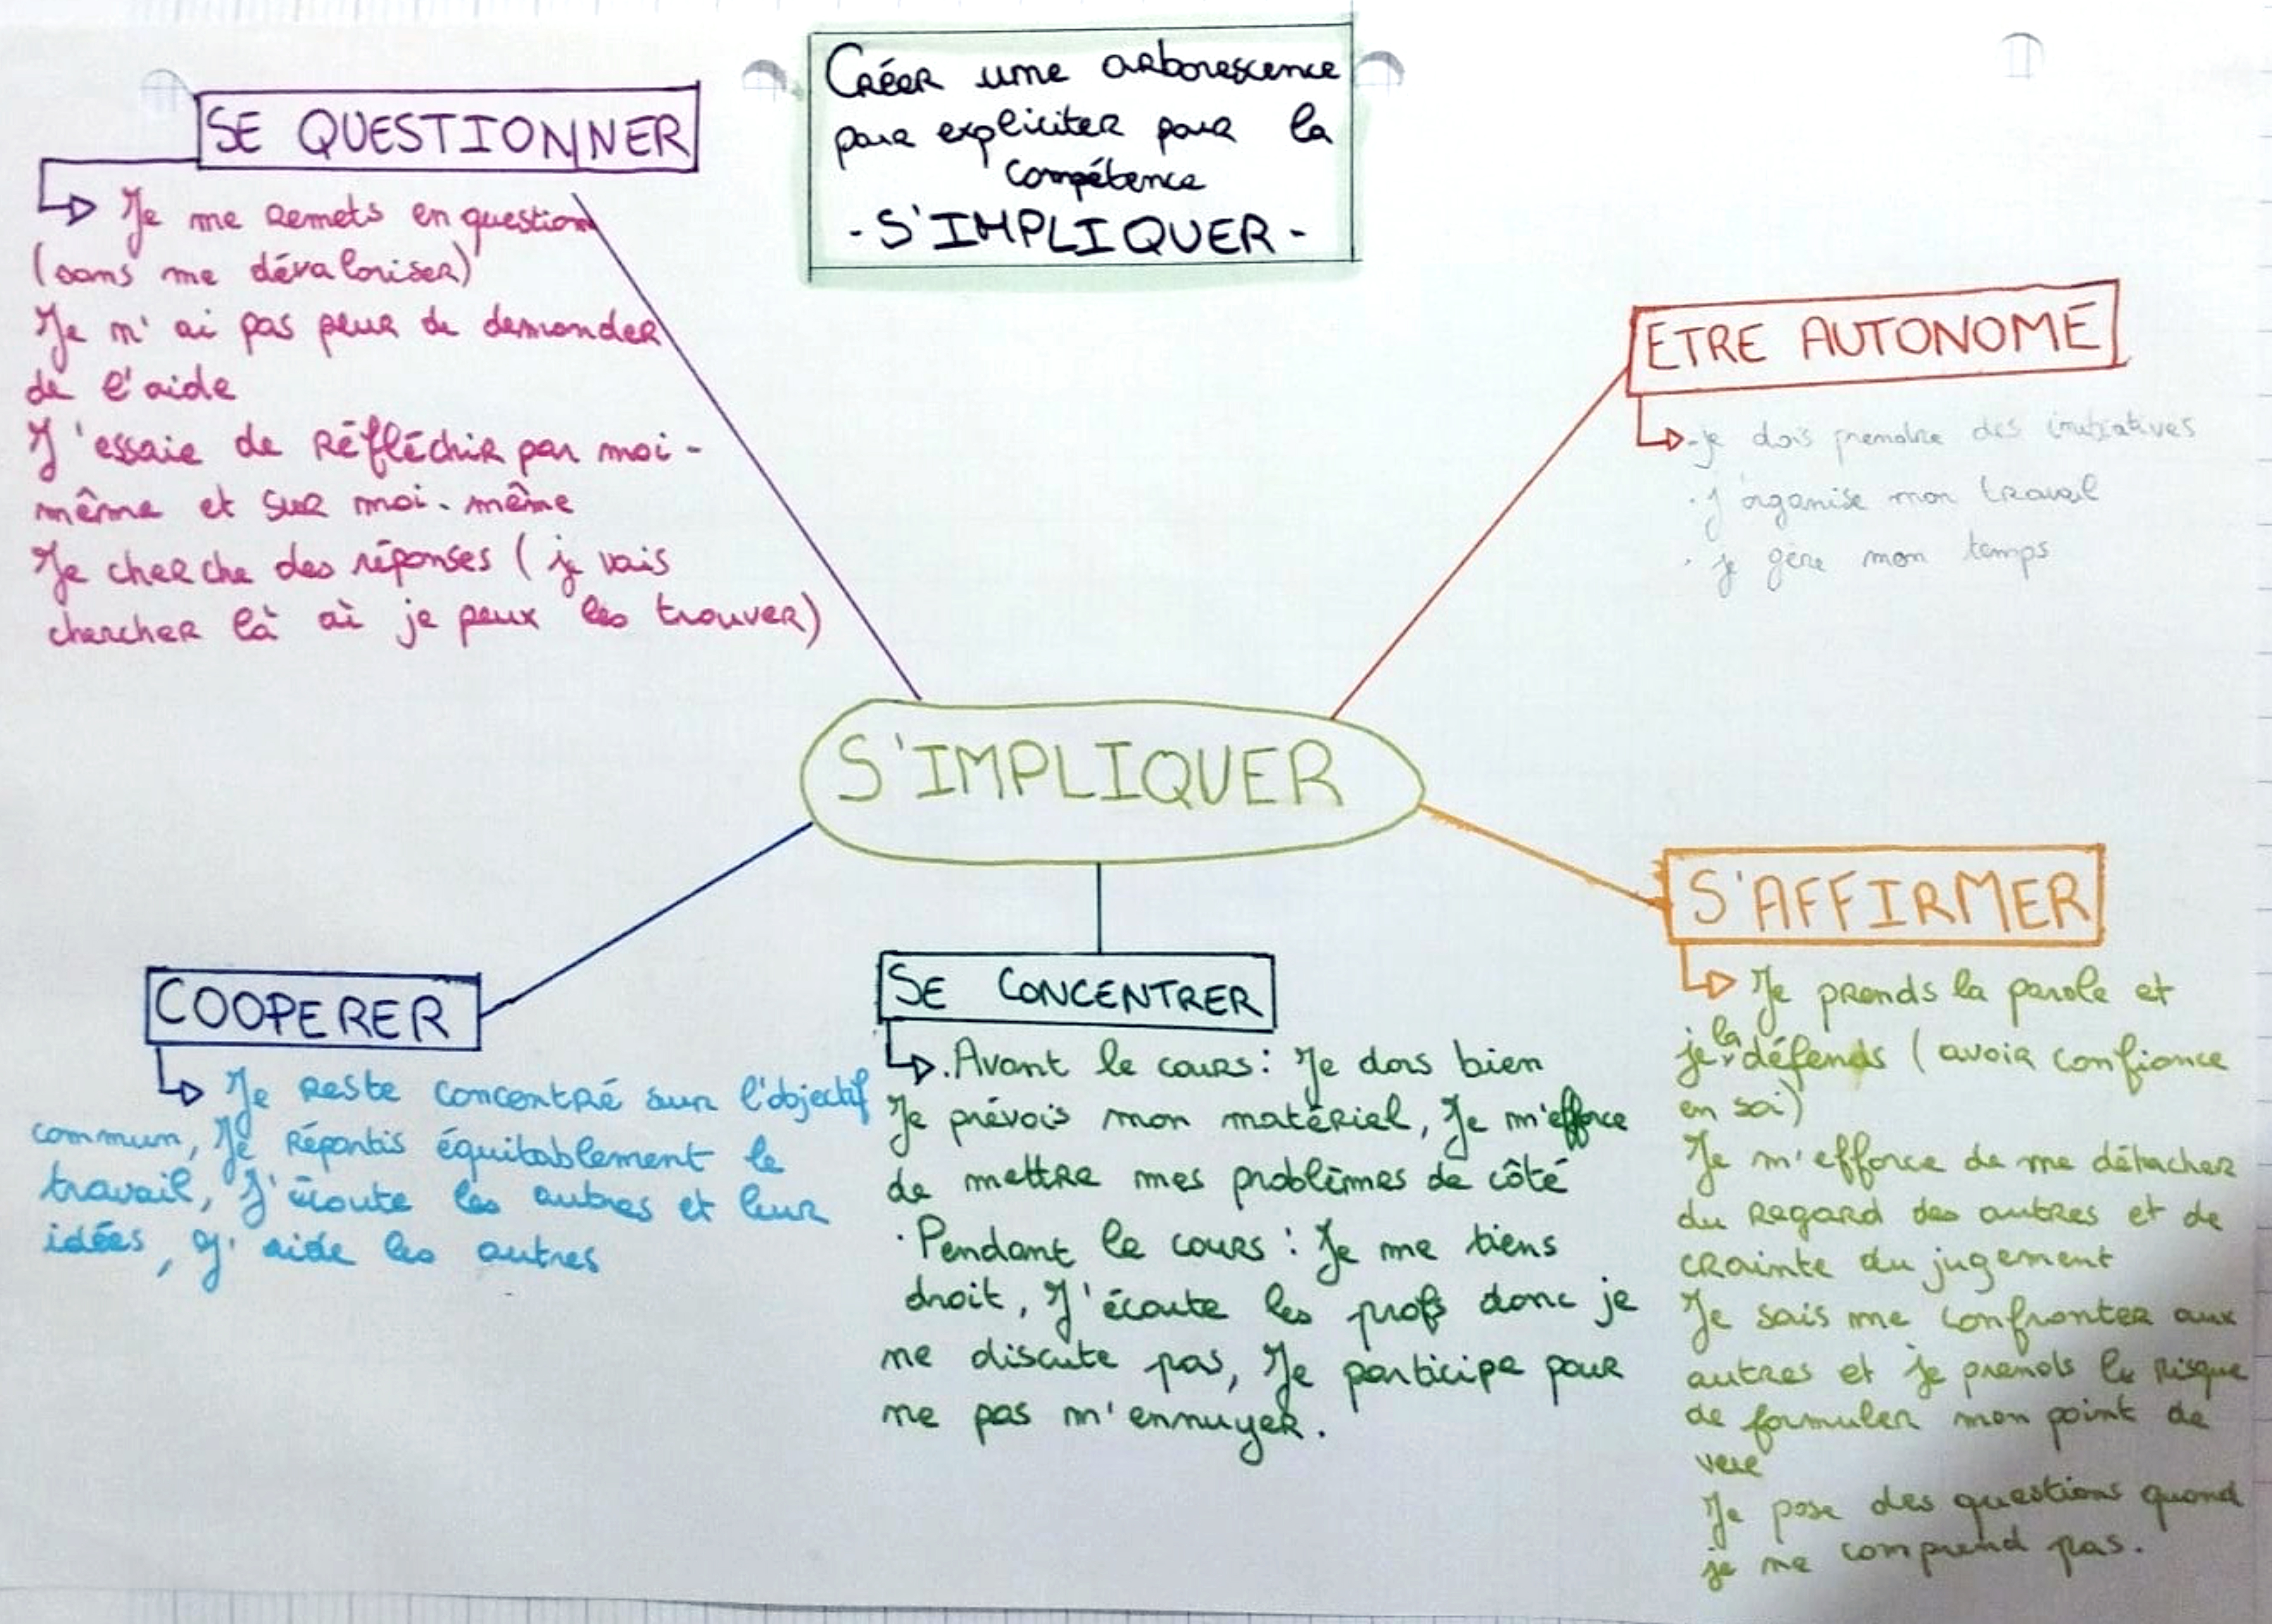 CRÉER une arborescence
pour expliciter pour la
compétence
- S'IMPLIQUER -
SE QUESTIONNER
Je me remets en question
(sans me dévaloriser)
Je n'ai pas peur de demander
de l'aide
J'essaie de réfléchir par moi-
même et sur moi-même
Je cherche des réponses (je vais
chercher là où je peux les trouver)
ETRE AUTONOME
- je dois prendre des initiatives
· j'organise mon travail
· je gère mon temps
S'IMPLIQUER
COOPERER
Je reste concentré sur l'objectif
commun, Je répartis équitablement le
travail, J'écoute les autres et leur
idées, J'aide les autres
SE CONCENTRER
· Avant le cours : Je dors bien
Je prévois mon matériel, Je m'efforce
de mettre mes problèmes de côté
· Pendant le cours : Je me tiens
droit, J'écoute les profs donc je
ne discute pas, Je participe pour
ne pas m'ennuyer.
S'AFFIRMER
Je prends la parole et
je la défends (avoir confiance
en soi)
Je m'efforce de me détacher
du regard des autres et de
crainte du jugement
Je sais me confronter aux
autres et je prends le risque
de formuler mon point de
vue
Je pose des questions quand
je ne comprend pas.